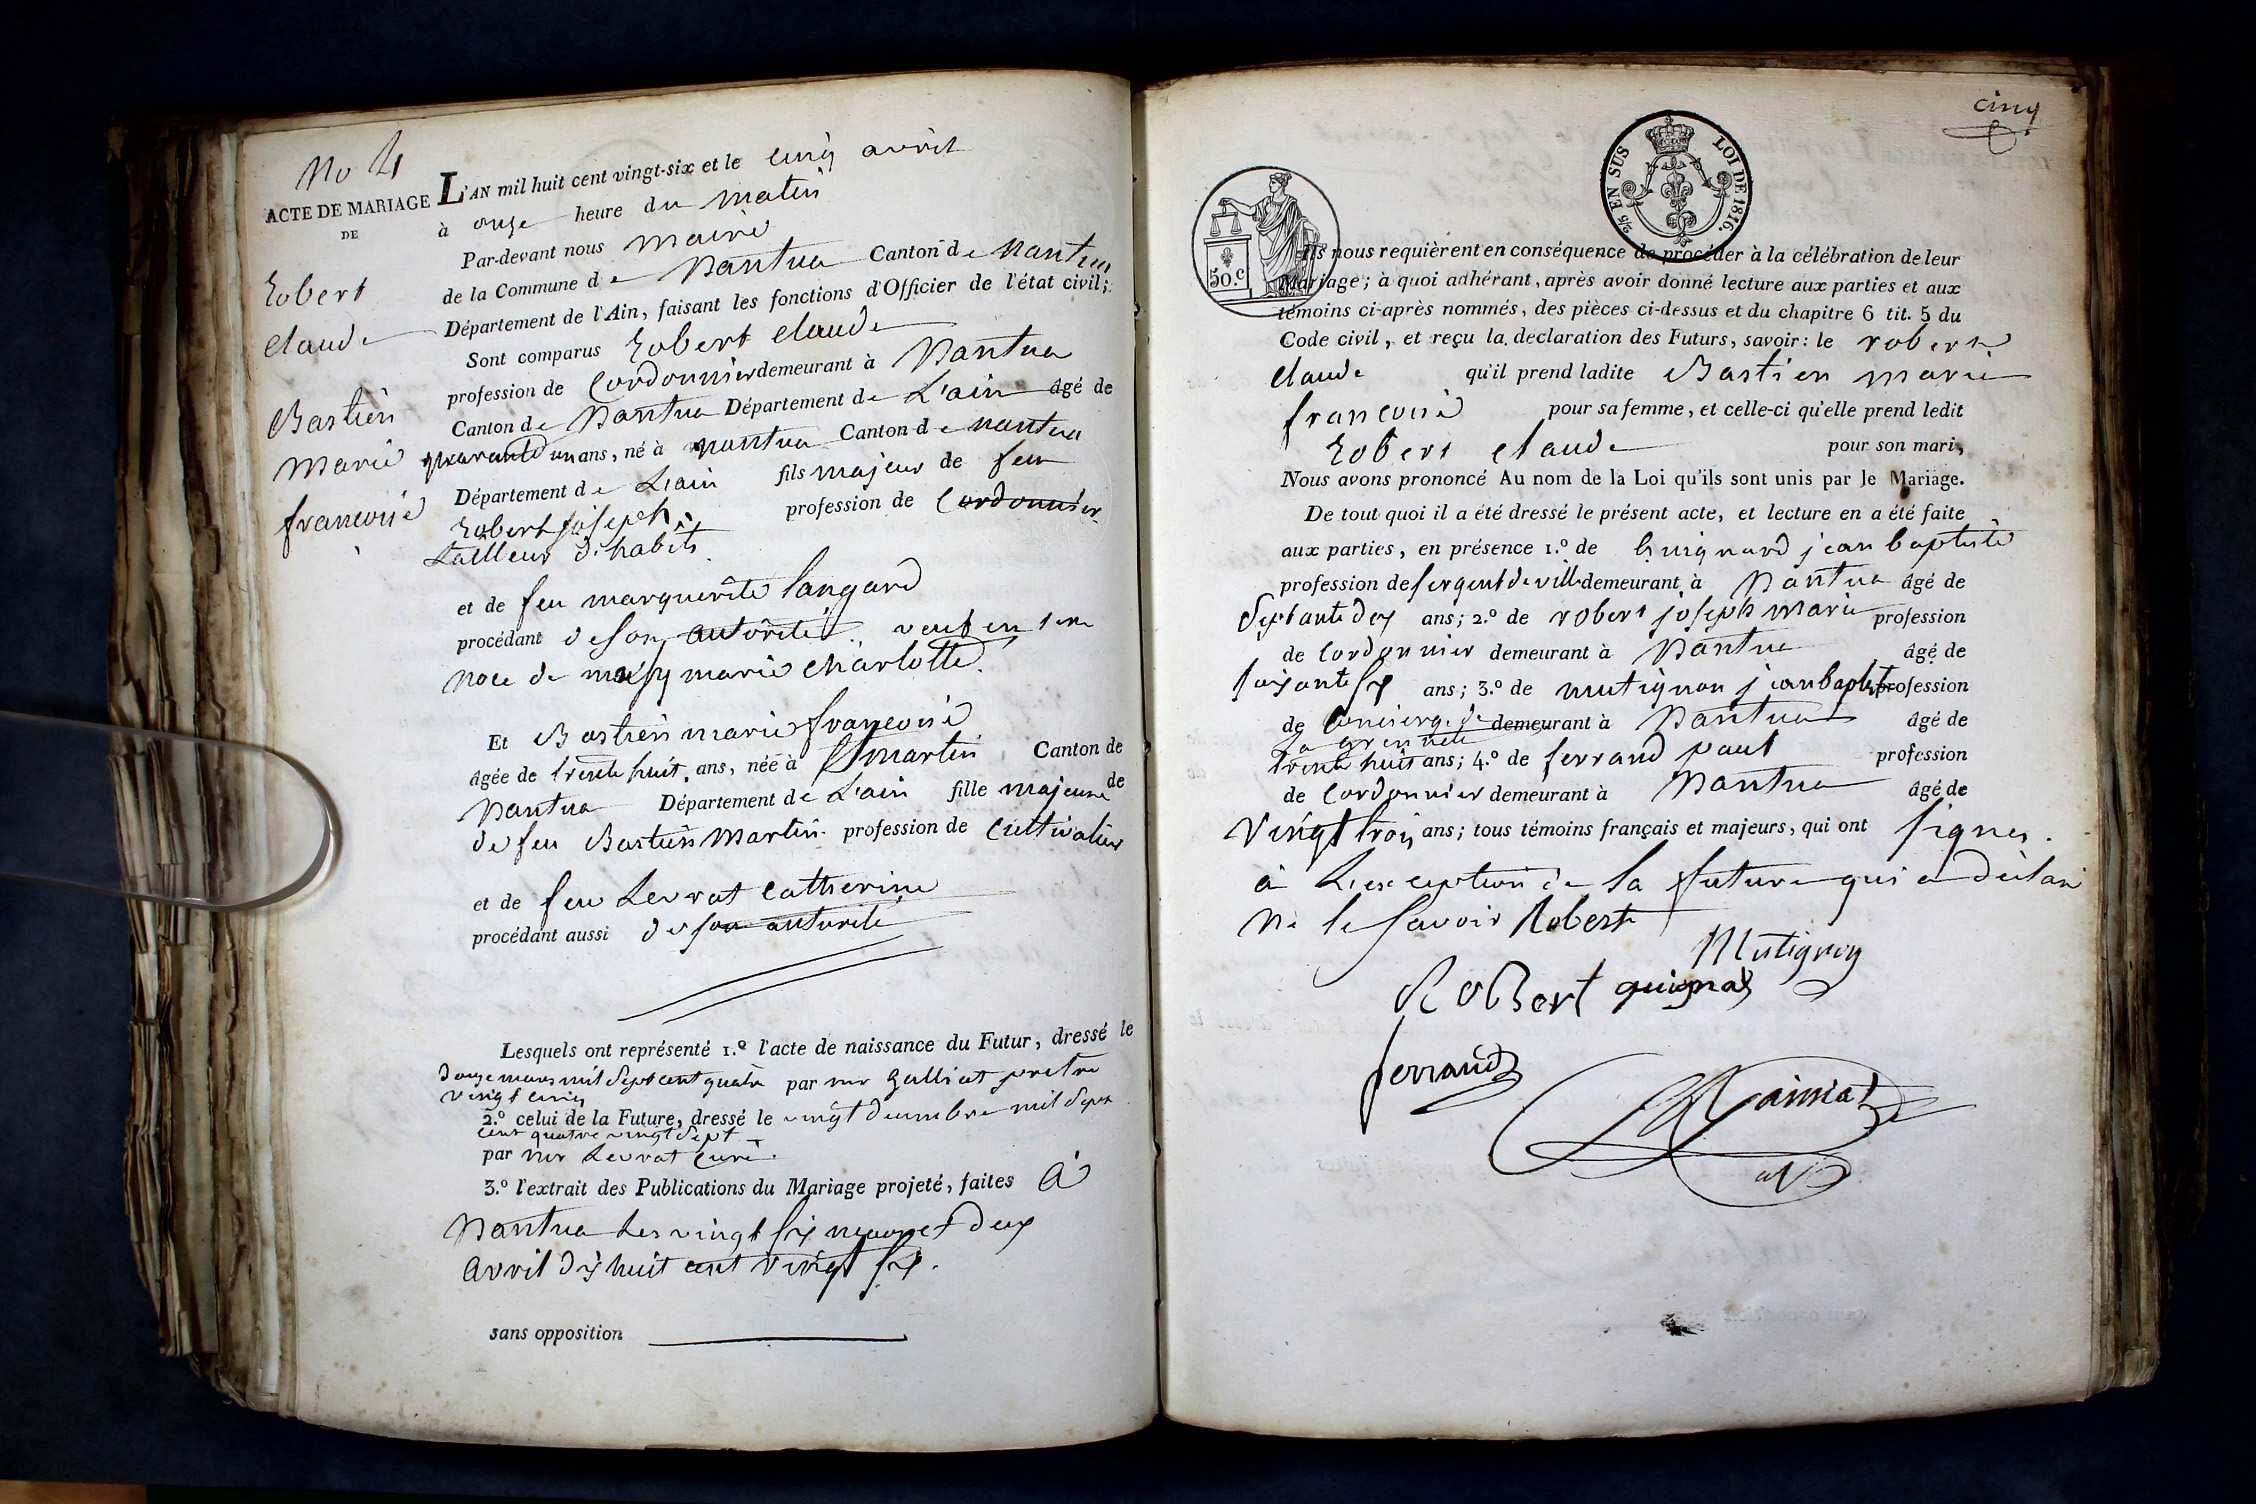 No 4
ACTE DE MARIAGE
DE
Robert
claude
Bastien
marie
francoise
L'AN mil huit cent vingt-six et le cinq avril
à onze heure du matin
Par-devant nous maire
de la Commune de Nantua Canton de nantua
Département de l'Ain, faisant les fonctions d'Officier de l'état civil;
Sont comparus Robert claude
profession de Cordonnier demeurant à Nantua
Canton de Nantua Département de L'ain âgé de
quarante un ans, né à nantua Canton de nantua
Département de L'ain fils majeur de feu
Robert joseph profession de Cordonnier
tailleur d'habits
et de feu marguerite langard
procédant de son autorité. veuf en 1ere
noce de marie charlotte
Et Bastien marie francoise
âgée de trente huit ans, née à St martin, Canton de
Nantua Département de L'ain fille majeure de
de feu Bastien Martin profession de Cultivateur
et de feu Levrat Catherine
procédant aussi de son autorité
Lesquels ont représenté 1.º l'acte de naissance du Futur, dressé le
douze mars mil sept cent quatre par mr Galliat pretre
vingt cinq
2.º celui de la Future, dressé le vingt decembre mil sept
cent quatre vingt sept
par mr Levrat curé.
3.º l'extrait des Publications du Mariage projeté, faites à
Nantua Les vingt six mars et deux
avril dix huit cent vingt six.
sans opposition
cinq
2/5 EN SUS LOI DE 1816.
50.c
Ils nous requièrent en conséquence de procéder à la célébration de leur
Mariage; à quoi adhérant, après avoir donné lecture aux parties et aux
témoins ci-après nommés, des pièces ci-dessus et du chapitre 6 tit. 5 du
Code civil, et reçu la declaration des Futurs, savoir: le robert
claude qu'il prend ladite Bastien marie
francoise pour sa femme, et celle-ci qu'elle prend ledit
Robert claude pour son mari,
Nous avons prononcé Au nom de la Loi qu'ils sont unis par le Mariage.
De tout quoi il a été dressé le présent acte, et lecture en a été faite
aux parties, en présence 1.º de Guignard jean baptiste
profession de sergent de ville demeurant à Nantua âgé de
septante dex ans; 2.º de robert joseph marie profession
de Cordonnier demeurant à Nantua âgé de
soixante six ans; 3.º de mutignon jean baptist profession
de Concierge de demeurant à Nantua âgé de
trente huit ans; 4.º de ferrand paul profession
de Cordonnier demeurant à Nantua âgé de
vingt trois ans; tous témoins français et majeurs, qui ont signés.
à L'exception de la future qui a déclaré
ne le savoir Robert
Mutignon
RoBert guignard
ferrand